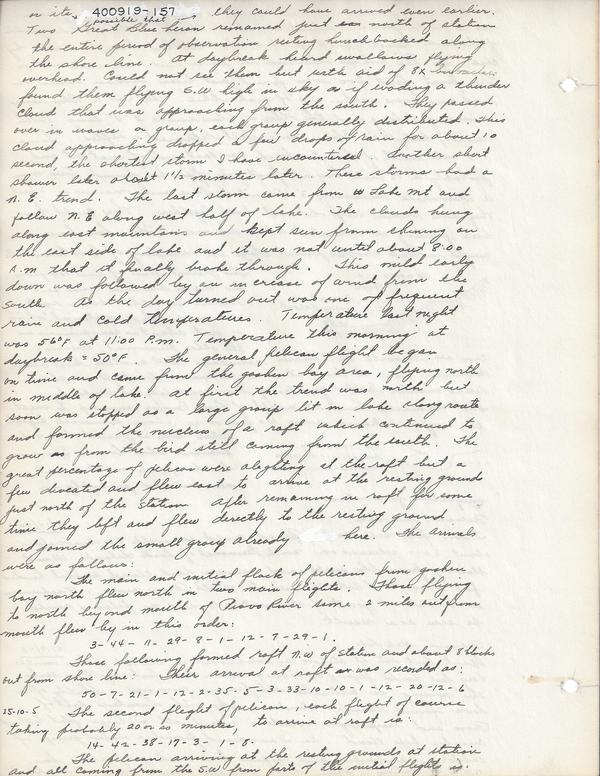 400919-157
or its possible that they could have arrived even earlier.
Two Great Blue heron remained just north of station
the entire period of observation resting hunchbacked along
the shore line. At daybreak heard swallows flying
overhead. Could not see them but with aid of 8x binoculars
found them flying S.W high in sky as if evading a thunder
cloud that was approaching from the south. They passed
over in waves or group, each group generally distributed. This
cloud approaching dropped a few drops of rain for about 10
second, the shortest storm I have encountered. Another short
shower later about 1 1/2 minutes later. These storms had a
N.E. trend. The last storm came from W Lake Mt and
follow N.E along west half of lake. The clouds hung
along east mountains and kept sun from shining on
the east side of lake and it was not until about 8:00
A.m that it finally broke through. This mild early
dawn was followed by an increase of wind from the
South As the day turned out was one of frequent
rain and cold temperatures. Temperature last night
was 56°F at 11:00 P.m. Temperature this morning at
daybreak = 50°F. The general pelican flight began
on time and came from the goshen bay area, flying north
in middle of lake. At first the trend was north but
soon was stopped as a large group lit in lake along route
and formed the nucleus of a raft which continued to
grow as from the bird still coming from the south. The
great percentage of pelican were alighting at the raft but a
few deviated and flew east to arrive at the resting grounds
just north of the station. After remaining in raft for some
time they left and flew directly to the resting ground
and joined the small group already here. The arrivals
were as follows:
The main and initial flock of pelicans from goshen
bay north flew north in two main flights. Those flying
to north beyond mouth of Provo River some 2 miles out from
mouth flew by in this order:
3-44-11-29-8-1-12-7-29-1.
Those following formed raft N.W of station and about 8 blocks
out from shore line: Their arrival at raft was recorded as:
50-7-21-1-12-2-35-5-3-33-10-10-1-12-20-12-6
25-10-5 The second flight of pelican, each flight of course
taking probably 20 or so minutes, to arrive at raft is:
14-42-38-17-3-1-8.
The pelican arriving at the resting grounds at station
and all coming from the S.W from parts of the initial flight is: